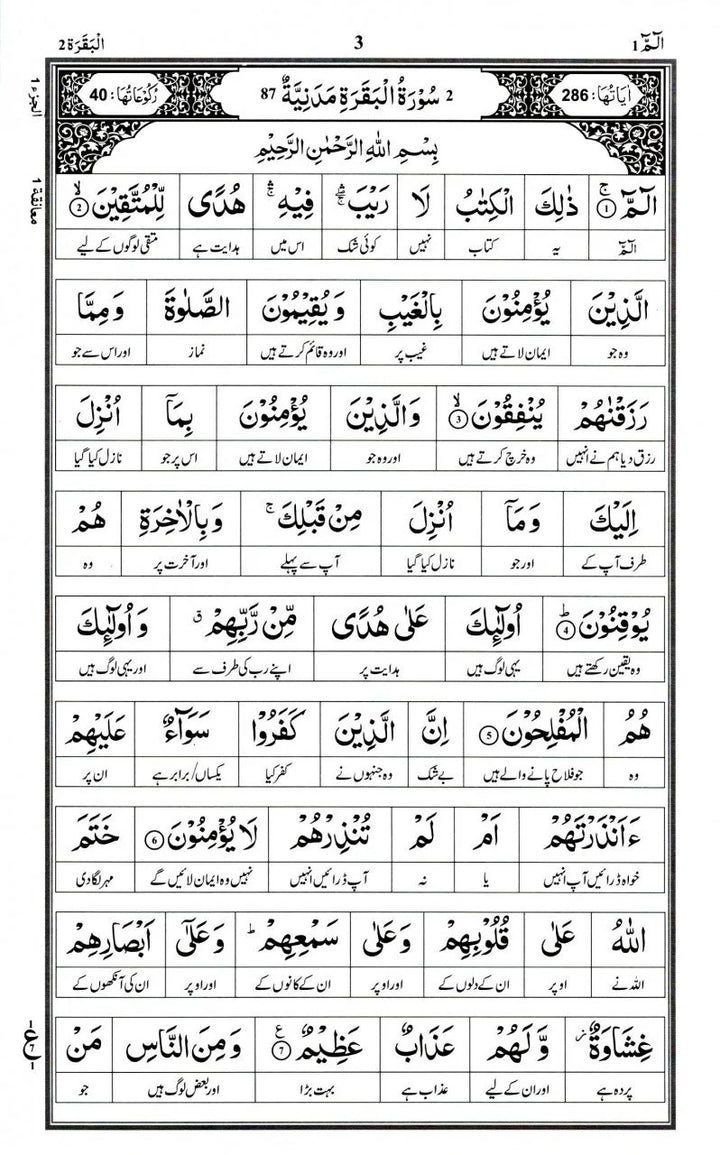 الٓمّٓ 1 3 الْبَقَرَة 2
اٰيَاتُهَا: 286 2 سُوْرَةُ الْبَقَرَةِ مَدَنِيَّةٌ 87 رُكُوْعَاتُهَا: 40
الجزء 1
معانقة 1
بِسْمِ اللّٰهِ الرَّحْمٰنِ الرَّحِيْمِ
الٓمّٓ ۚ ① ذٰلِكَ الْكِتٰبُ لَا رَيْبَ ۛۚ فِيْهِ ۛۚ هُدًى لِّلْمُتَّقِيْنَ ۙ ②
الٓمّٓ یہ کتاب نہیں کوئی شک اس میں ہدایت ہے متقی لوگوں کے لیے
الَّذِيْنَ يُؤْمِنُوْنَ بِالْغَيْبِ وَيُقِيْمُوْنَ الصَّلٰوةَ وَمِمَّا
وہ جو ایمان لاتے ہیں غیب پر اور وہ قائم کرتے ہیں نماز اور اس سے جو
رَزَقْنٰهُمْ يُنْفِقُوْنَ ۙ ③ وَالَّذِيْنَ يُؤْمِنُوْنَ بِمَآ اُنْزِلَ
رزق دیا ہم نے انہیں وہ خرچ کرتے ہیں اور وہ جو ایمان لاتے ہیں اس پر جو نازل کیا گیا
اِلَيْكَ وَمَآ اُنْزِلَ مِنْ قَبْلِكَ ۚ وَبِالْاٰخِرَةِ هُمْ
طرف آپ کے اور جو نازل کیا گیا آپ سے پہلے اور آخرت پر وہ
يُوْقِنُوْنَ ؕ ④ اُولٰٓئِكَ عَلٰى هُدًى مِّنْ رَّبِّهِمْ ۗ وَاُولٰٓئِكَ
وہ یقین رکھتے ہیں یہی لوگ ہیں ہدایت پر اپنے رب کی طرف سے اور یہی لوگ ہیں
هُمُ الْمُفْلِحُوْنَ ⑤ اِنَّ الَّذِيْنَ كَفَرُوْا سَوَآءٌ عَلَيْهِمْ
وہ جو فلاح پانے والے ہیں بے شک وہ جنہوں نے کفر کیا یکساں/برابر ہے ان پر
ءَاَنْذَرْتَهُمْ اَمْ لَمْ تُنْذِرْهُمْ لَا يُؤْمِنُوْنَ ⑥ خَتَمَ
خواہ ڈرائیں آپ انہیں یا نہ آپ ڈرائیں انہیں نہیں وہ ایمان لائیں گے مہر لگا دی
اللّٰهُ عَلٰى قُلُوْبِهِمْ وَعَلٰى سَمْعِهِمْ ؕ وَعَلٰٓى اَبْصَارِهِمْ
اللہ نے اوپر ان کے دلوں کے اور اوپر ان کے کانوں کے اور اوپر ان کی آنکھوں کے
غِشَاوَةٌ ۫ وَّلَهُمْ عَذَابٌ عَظِيْمٌ ۧ ⑦ وَمِنَ النَّاسِ مَنْ
پردہ ہے اور ان کے لیے عذاب ہے بہت بڑا اور بعض لوگ ہیں جو
ع
7